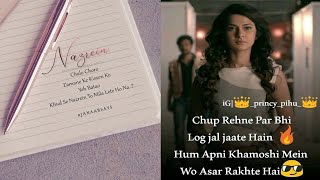 Nazrein
Chalo Chore
Zamane Ko Kinare Ko
Yeh Batao
Khud Se Nazrein To Mila Lete Ho Na..?
iG|👑_princy_pihu_👑
Chup Rehne Par Bhi
Log jal jaate Hain 🔥
Hum Apni Khamoshi Mein
Wo Asar Rakhte Hai😎